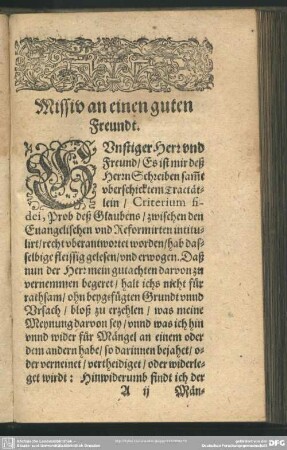 Missiv an einen guten
Freundt.
GVnstiger Herr vnd
Freund / Es ist mir deß
Herrn Schreiben sam̃t
vberschicktem Tractät-
lein / Criterium fi-
dei, Prob deß Glaubens / zwischen den
Euangelischen vnd Reformirten intitu-
lirt / recht vberantwortet worden / hab das-
selbige fleissig gelesen / vnd erwogen. Daß
nun der Herr mein gutachten darvon zu
vernemmen begeret / halt ichs nicht für
rathsam / ohn beygefügten Grundt vnnd
Vrsach / bloß zu erzehlen / was meine
Meynung darvon sey / vnnd was ich hin
vnnd wider für Mängel an einem oder
dem andern habe / so darinnen bejahet / o-
der verneinet / vertheidiget / oder widerle-
get wirdt : Hinwiderumb findt ich der
A ij Män-